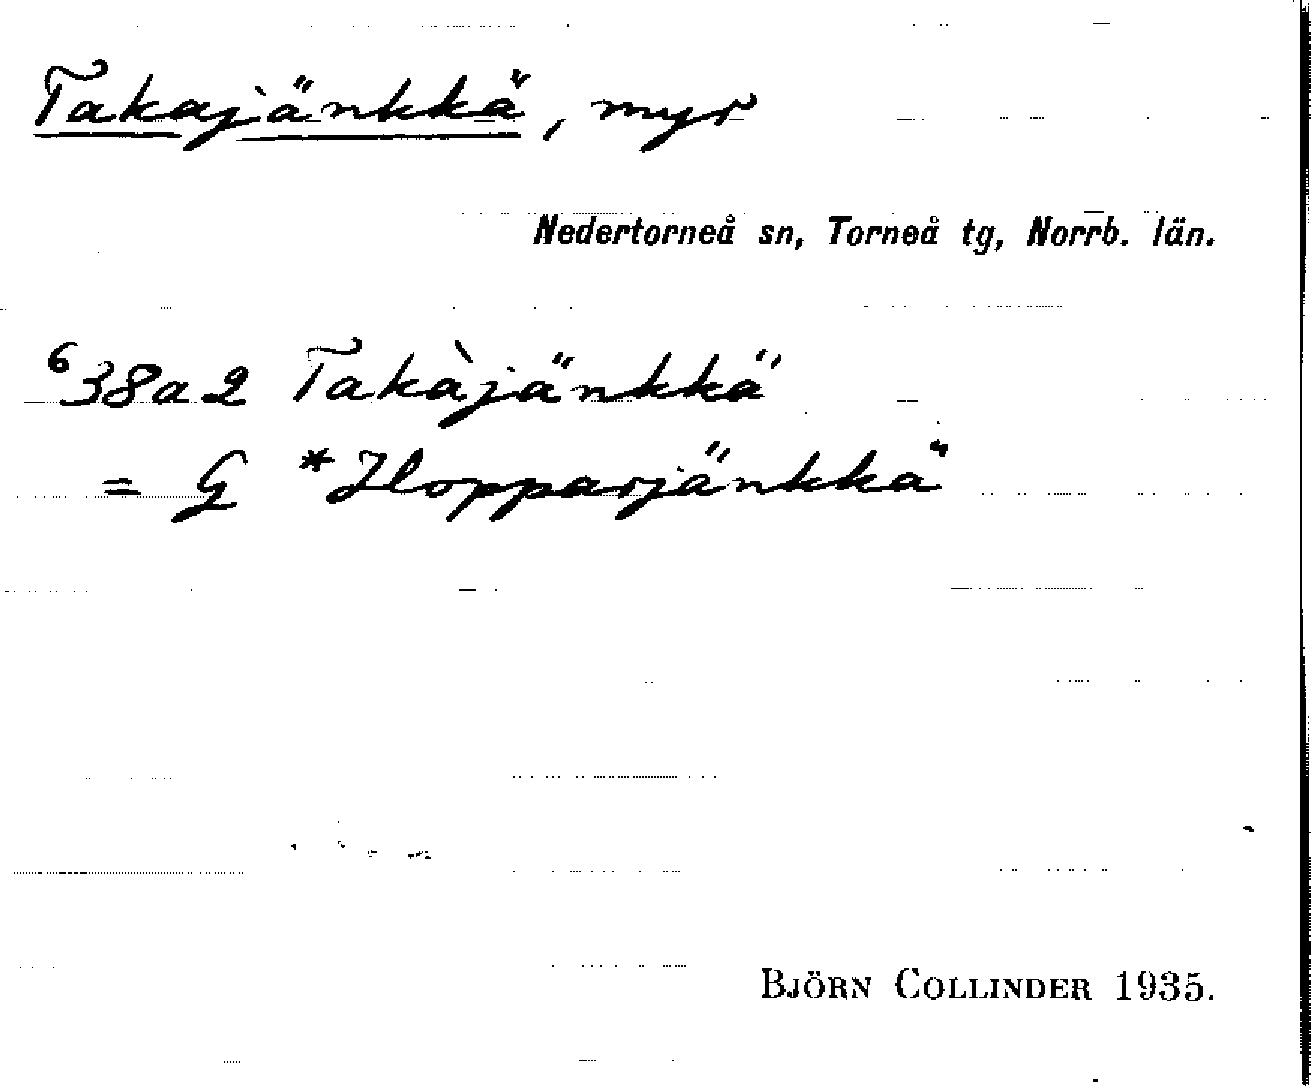 Takajänkkä, myr
Nedertorneå sn, Torneå tg, Norrb. län.
⁶38a2 Takàjänkkä
= G *Hopparjänkkä
BJÖRN COLLINDER 1935.